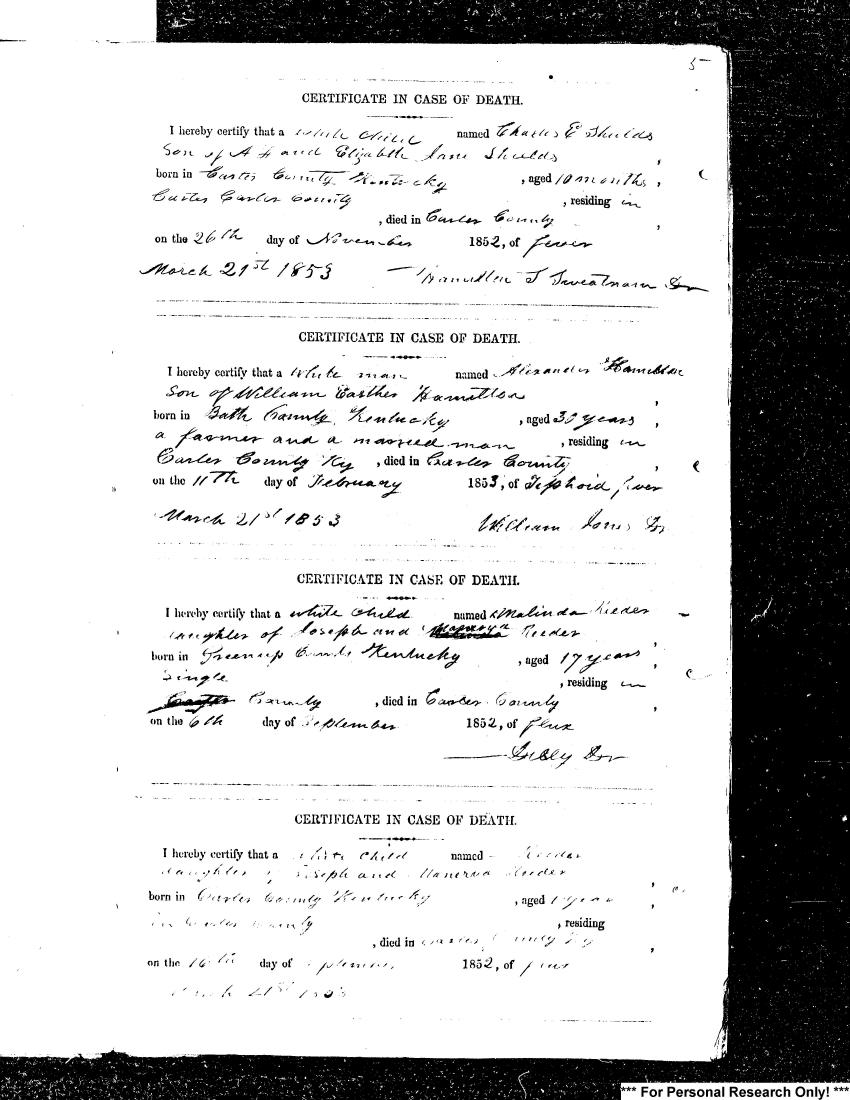 5
CERTIFICATE IN CASE OF DEATH.
I hereby certify that a white child named Charles E Shields
Son of A H and Elizabeth Jane Shields ,
born in Carter County Kentucky , aged 10 months ,
Carter Carter County , residing in
, died in Carter County ,
on the 26th day of November 1852, of fever
March 21st 1853 Hamilton S Sweatnam Dr
CERTIFICATE IN CASE OF DEATH.
I hereby certify that a white man named Alexander Hamilton
Son of William Easther Hamilton ,
born in Bath County, Kentucky , aged 30 years ,
a farmer and a married man , residing in
Carter County Ky , died in Carter County ,
on the 11th day of February 1853, of Tiphoid fever
March 21st 1853 William Jones Dr
CERTIFICATE IN CASE OF DEATH.
I hereby certify that a white child named Malinda Reeder
daughter of Joseph and Reeder ,
born in Greenup County Kentucky , aged 17 years ,
Single , residing in
Carter County , died in Carter County ,
on the 6th day of September 1852, of flux
Dr
CERTIFICATE IN CASE OF DEATH.
I hereby certify that a white child named - Reeder
daughter of Joseph and Manerva Reeder ,
born in Carter County Kentucky , aged 1 year ,
in Carter County , residing
, died in Carter County Ky ,
on the 16th day of September 1852, of flux
March 21st 1853
*** For Personal Research Only! ***